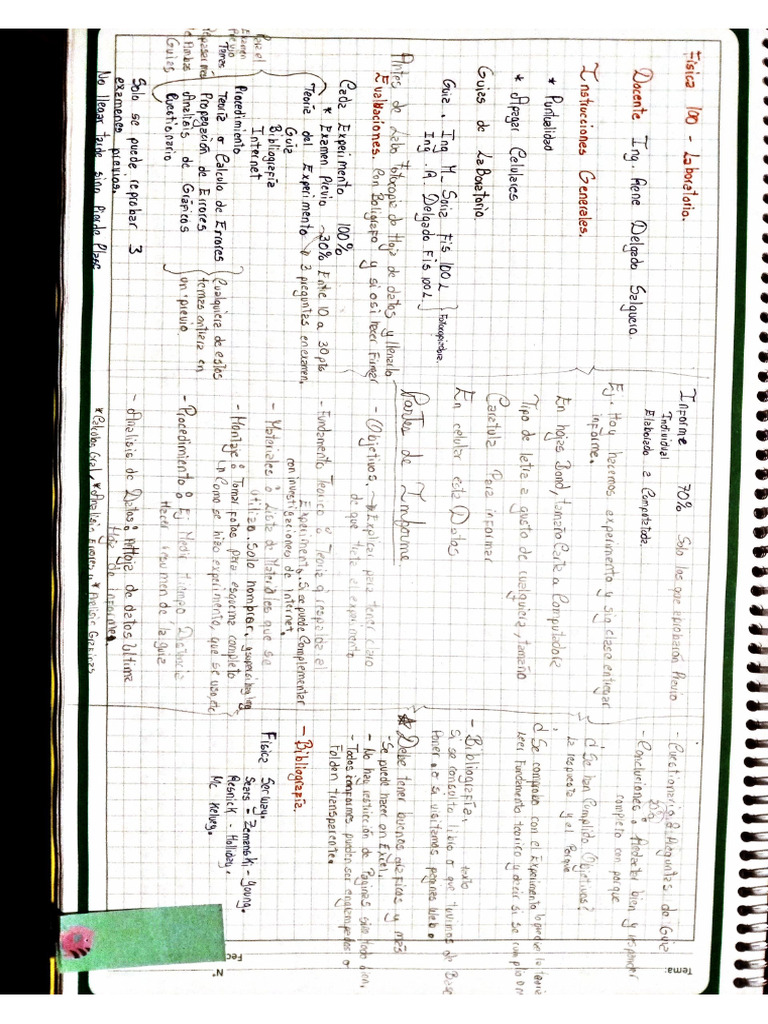 Tema:
Fec
N°
Física 100 - Laboratorio.
Docente Ing. Rene Delgado Salguero.
Instrucciones Generales.
* Puntualidad
* Apagar Celulares
Guias de Laboratorio.
Guia . Ing M. Soriz Fis 100 L
Ing . R. Delgado Fis 100L.
Fotocopiadora.
Antes de Lab Fotocopia de Hoja de datos y llenarlo
Con Boligrafo y si o si Hacer Firmar
Evaluaciones.
Cada Experimento 100%
* Examen Previo 30% Entre 10 a 30 pts
Teoria del Experimento 3 preguntas en examen.
Guia
Bibliografía
Internet
Procedimiento
Teoria o Calculo de Errores
Propagación de Errores
Analisis de Gráficos
Cuestionario
Cualquiera de estos
temas entrara en
un previo
Para el
Examen
Previo
Guias
Solo se puede reprobar 3
examenes previos.
No llegar tarde sino Pierde Clase
Informe 70% Solo los que aprobaron Previo
Individual
Elaborado a Computadora.
Ej. Hoy hacemos experimento y sig clase entregar
informe.
En hojas Bond, tamaño Carta a Computadora
Tipo de letra a gusto de cualquiera, tamaño
Caratula Para informar
En celular esta Datos
Partes de Informe.
- Objetivos. Explicar para tener claro
de que trata el experimento
- Fundamento Teorico o Teoria q respalda el
Experimento. Si se puede Complementar
con investigaciones de Internet.
- Materiales o Lista de Materiales que se
utiliza. Solo nombrar,
- Montaje o Tomar fotos para esquema completo
Como se hizo experimento, que se uso, etc
- Procedimiento o Ej Medir tiempo Distancia
Hacer resumen de la guia
- Analisis de Datos o Hoja de datos Ultima
Hoja de Informe.
* Calculos Gral, * Analisis Errores, * Analisis Graficas
- Cuestionario o Preguntas de Guia
- Conclusiones o Redactar bien y responder
completo con porque
¿Se han Cumplido Objetivos?
La respuesta y el Porque
¿Se comprobo con el Experimento lo que dice la teoria
Leer Fundamento teorico y decir si se cumplio o no
- Bibliografía. texto
Si se consulto libro o que tuvimos de Base
Poner . o si visitamos paginas Web.
* Debe tener buenos gráficos y mas
- Se puede hacer en Excel.
- No hay restricción de Paginas sino todo bien.
- Todos informes pueden ser engrampados o
Folder transparente.
- Bibliografía.
Física Serway.
Sears - Zemanski - Young.
Resnick . Holliday.
Mc Kelvey.